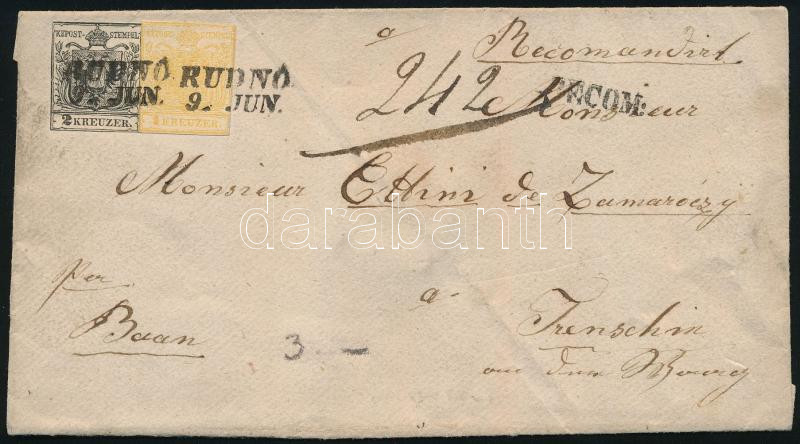 KKPOST-STEMPEL
KKPOST-STEMPEL
2 KREUZER.
1 KREUZER.
RUDNÓ
9. JUN.
RUDNÓ
9. JUN.
a
Recomandirt
242
RECOM:
Monsieur
Monsieur Ettini de Zamaróczy
per
Baan
3
a
Trenschin
darabanth